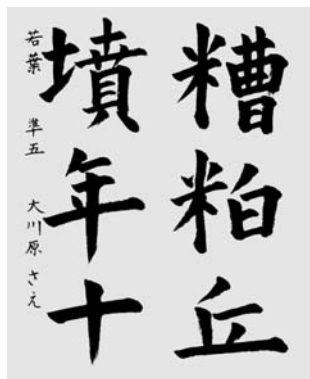 糟粕丘
墳年十
若葉 準五 大川原 さえ